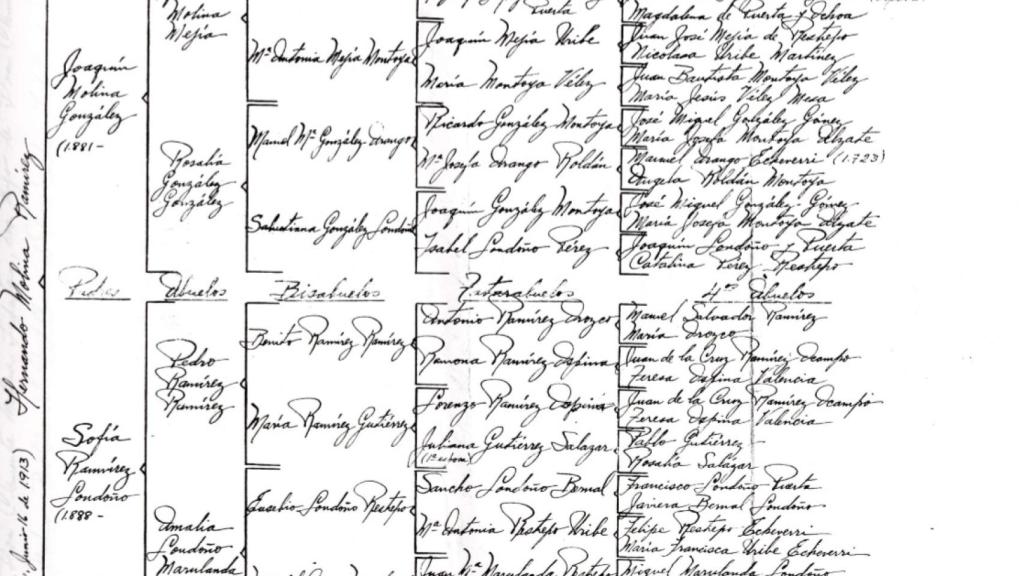 Molina
Mejía
Puerta
Magdalena de Puerta y Ochoa
Joaquín Mejía Uribe
Juan José Mejía de Restrepo
Nicolasa Uribe Martínez
Mª Antonia Mejía Montoya
María Montoya Vélez
Juan Bautista Montoya Vélez
María Jesús Vélez Mesa
Joaquín
Molina
González
(1881-
Ricardo González Montoya
José Miguel González Gómez
María Josefa Montoya Alzate
Manuel Mª González Arango
Mª Josefa Arango Roldán
Manuel Arango Echeverri (1.723)
Ángela Roldán Montoya
Rosalía
González
González
Joaquín González Montoya
José Miguel González Gómez
María Josefa Montoya Alzate
Salustiana González Londoño
Isabel Londoño Pérez
Joaquín Londoño y Puerta
Catalina Pérez Restrepo
Padres Abuelos Bisabuelos Tatarabuelos 4ºs Abuelos
Antonio Ramírez Orozco
Manuel Salvador Ramírez
María Orozco
Benito Ramírez Ramírez
Ramona Ramírez Ospina
Juan de la Cruz Ramírez Ocampo
Teresa Ospina Valencia
Pedro
Ramírez
Ramírez
Lorenzo Ramírez Ospina
Juan de la Cruz Ramírez Ocampo
Teresa Ospina Valencia
María Ramírez Gutiérrez
Juliana Gutiérrez Salazar
Pablo Gutiérrez
Rosalía Salazar
Sofía
Ramírez
Londoño
(1888-
Sancho Londoño Bernal
Francisco Londoño Puerta
Javiera Bernal Londoño
Eusebio Londoño Restrepo
Mª Antonia Restrepo Uribe
Felipe Restrepo Echeverri
María Francisca Uribe Echeverri
Amalia
Londoño
Marulanda
Juan Mª Marulanda Restrepo
Miguel Marulanda Londoño
Hernando Molina Ramírez
Junio 16 de 1913)